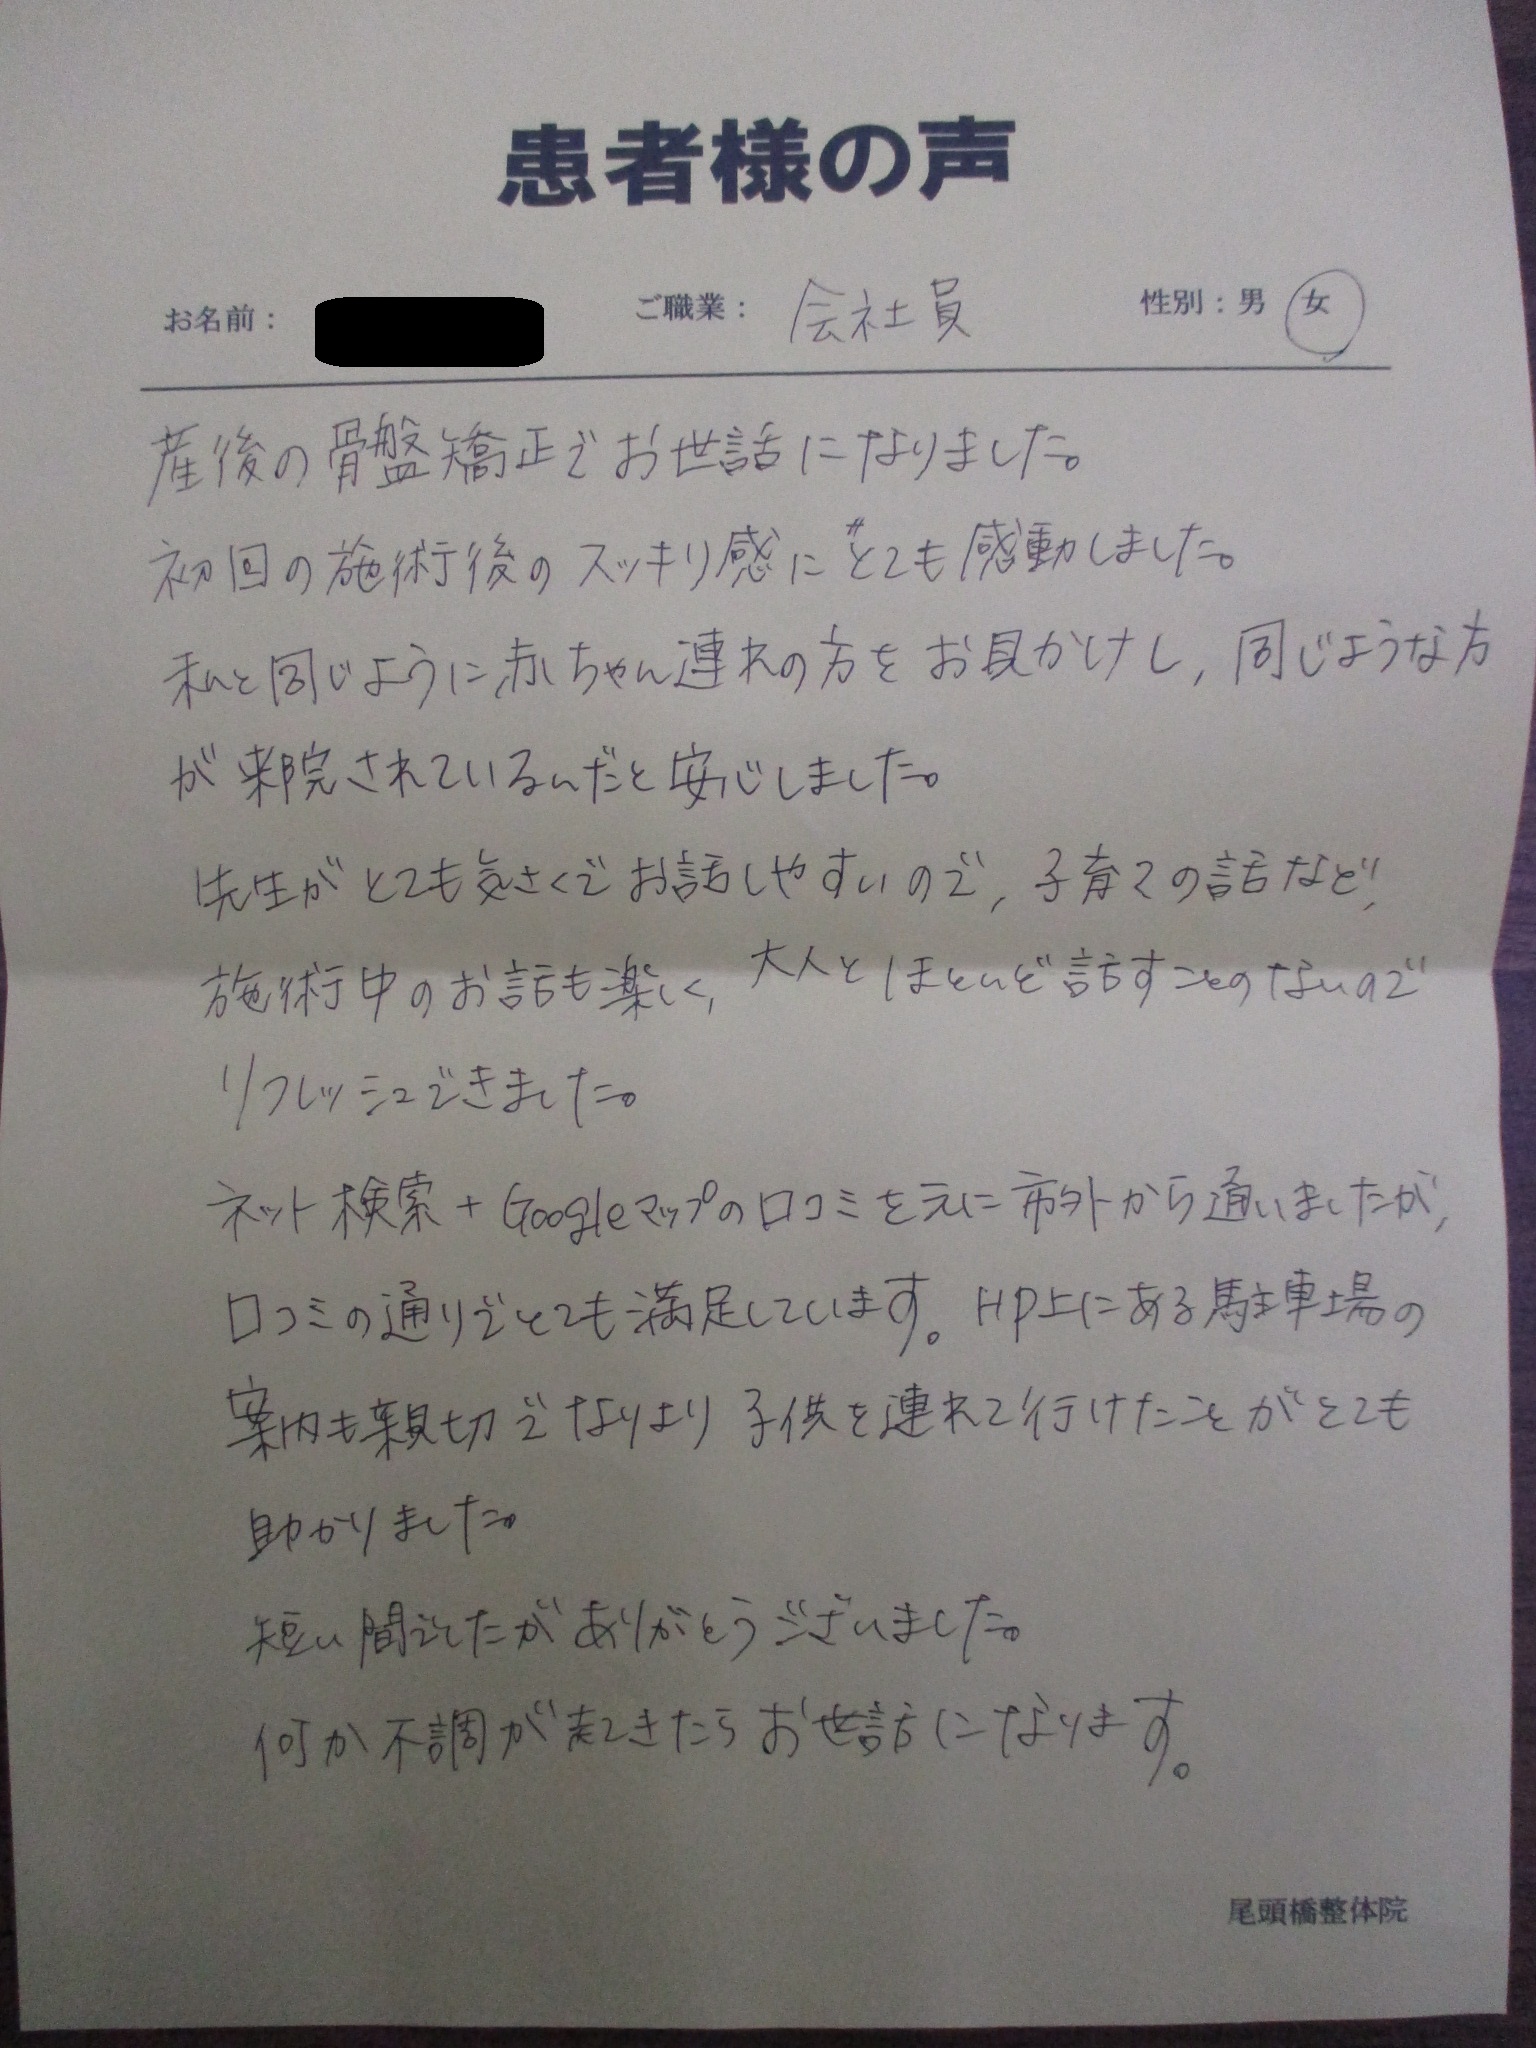 患者様の声
お名前： ご職業： 会社員 性別：男 女
産後の骨盤矯正でお世話になりました。
初回の施術後のスッキリ感にとても感動しました。
私と同じように、赤ちゃん連れの方をお見かけし、同じような方
が来院されているんだと安心しました。
先生がとても気さくでお話しやすいので、子育ての話など、
施術中のお話も楽しく、大人とほとんど話すことのないので
リフレッシュできました。
ネット検索+Googleマップの口コミを元に市外から通いましたが、
口コミの通りでとても満足しています。HP上にある駐車場の
案内も親切でなりより子供を連れて行けたことがとても
助かりました。
短い間でしたがありがとうございました。
何か不調が起きたらお世話になります。
尾頭橋整体院